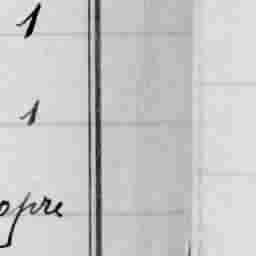 1
1
opre